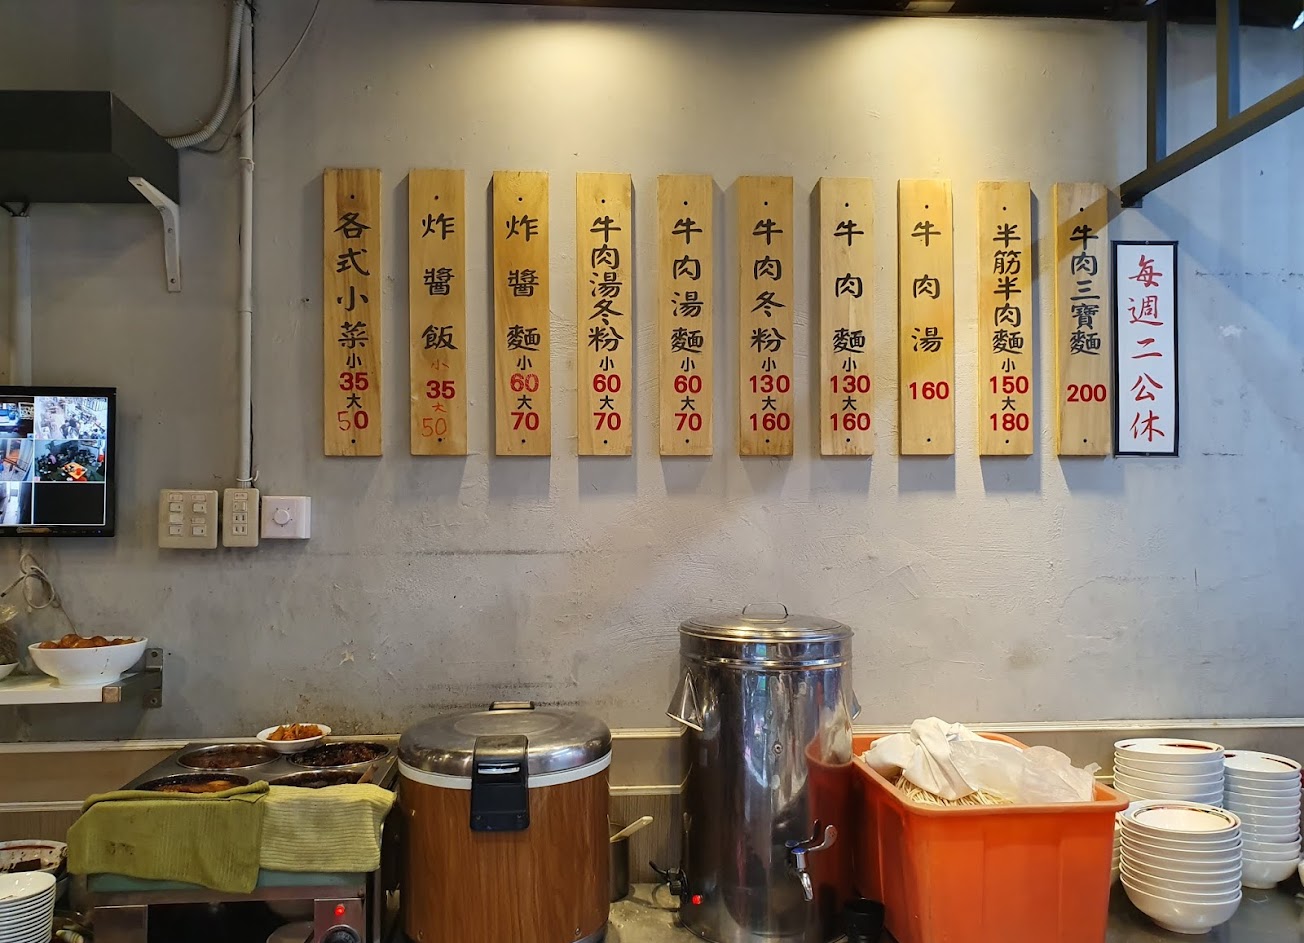 各式小菜 小 35 大 50
炸醬飯 小 35 大 50
炸醬麵 小 60 大 70
牛肉湯冬粉 小 60 大 70
牛肉湯麵 小 60 大 70
牛肉冬粉 小 130 大 160
牛肉麵 小 130 大 160
牛肉湯 160
半筋半肉麵 小 150 大 180
牛肉三寶麵 200
每週二公休